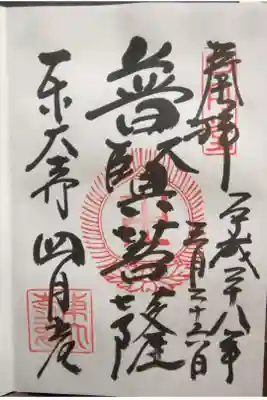 奉拝
平成二十八年
三月二十六日
普賢菩薩
東大寺 四月堂